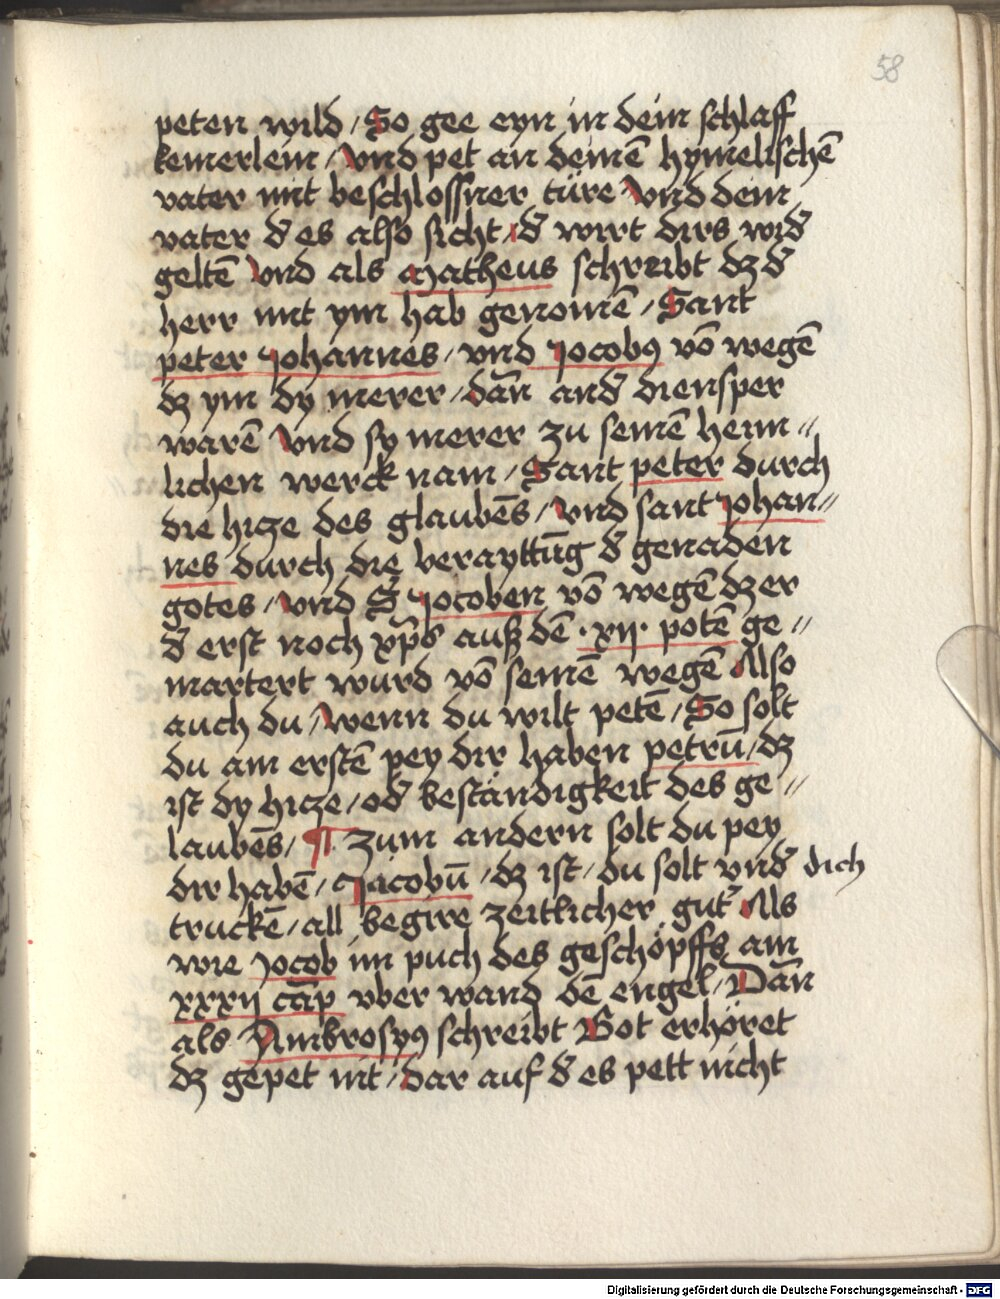 58
peten wild / So gee eyn in dein schlaff
kemerlein / Vnd pet an deinē hymelischē
vater mit beschlossner türe Vnd dein
vater d̄ es also sicht / d̄ wirt dirs wid̄
geltē Vnd als Matheus schreibt dz d̄
herr mit ym hab genomē / Sant
peter Johannes / vnd Jocobꝰ vō wegē
dz ym dy merer / dan̄ and̄ diensper
warē Vnd sy merer zu seinē heim〃
lichen werck nam / Sant peter durch
die hicze des glaubēs / Vnd sant Johan〃
nes durch die berayttūg d̄ genaden
gotes / Vnd S̄ Jocoben vō wegē dz er
d̄ erst noch xp̄s auß dē · xij · potē ge〃
martert wurd vō seinē wegē Also
auch du / wenn du wilt petē / So solt
du am erstē pey dir haben petrū / dz
ist dy hicze / od̄ beständigkeit des ge〃
laubēs / ¶ Zum andern solt du pey
dir habē / Jacobū / dz ist / du solt vnd̄ dich
truckē / all begire zeitlicher gut᷑ Als
wie Jocob im puch des geschöpffs am
xxxij cap̄ vber wand dē engel / Dan̄
als Ambrosyꝰ schreibt Got erhöret
dz gepet nit / dar auf d̄ es pett nicht
Digitalisierung gefördert durch die Deutsche Forschungsgemeinschaft - DFG